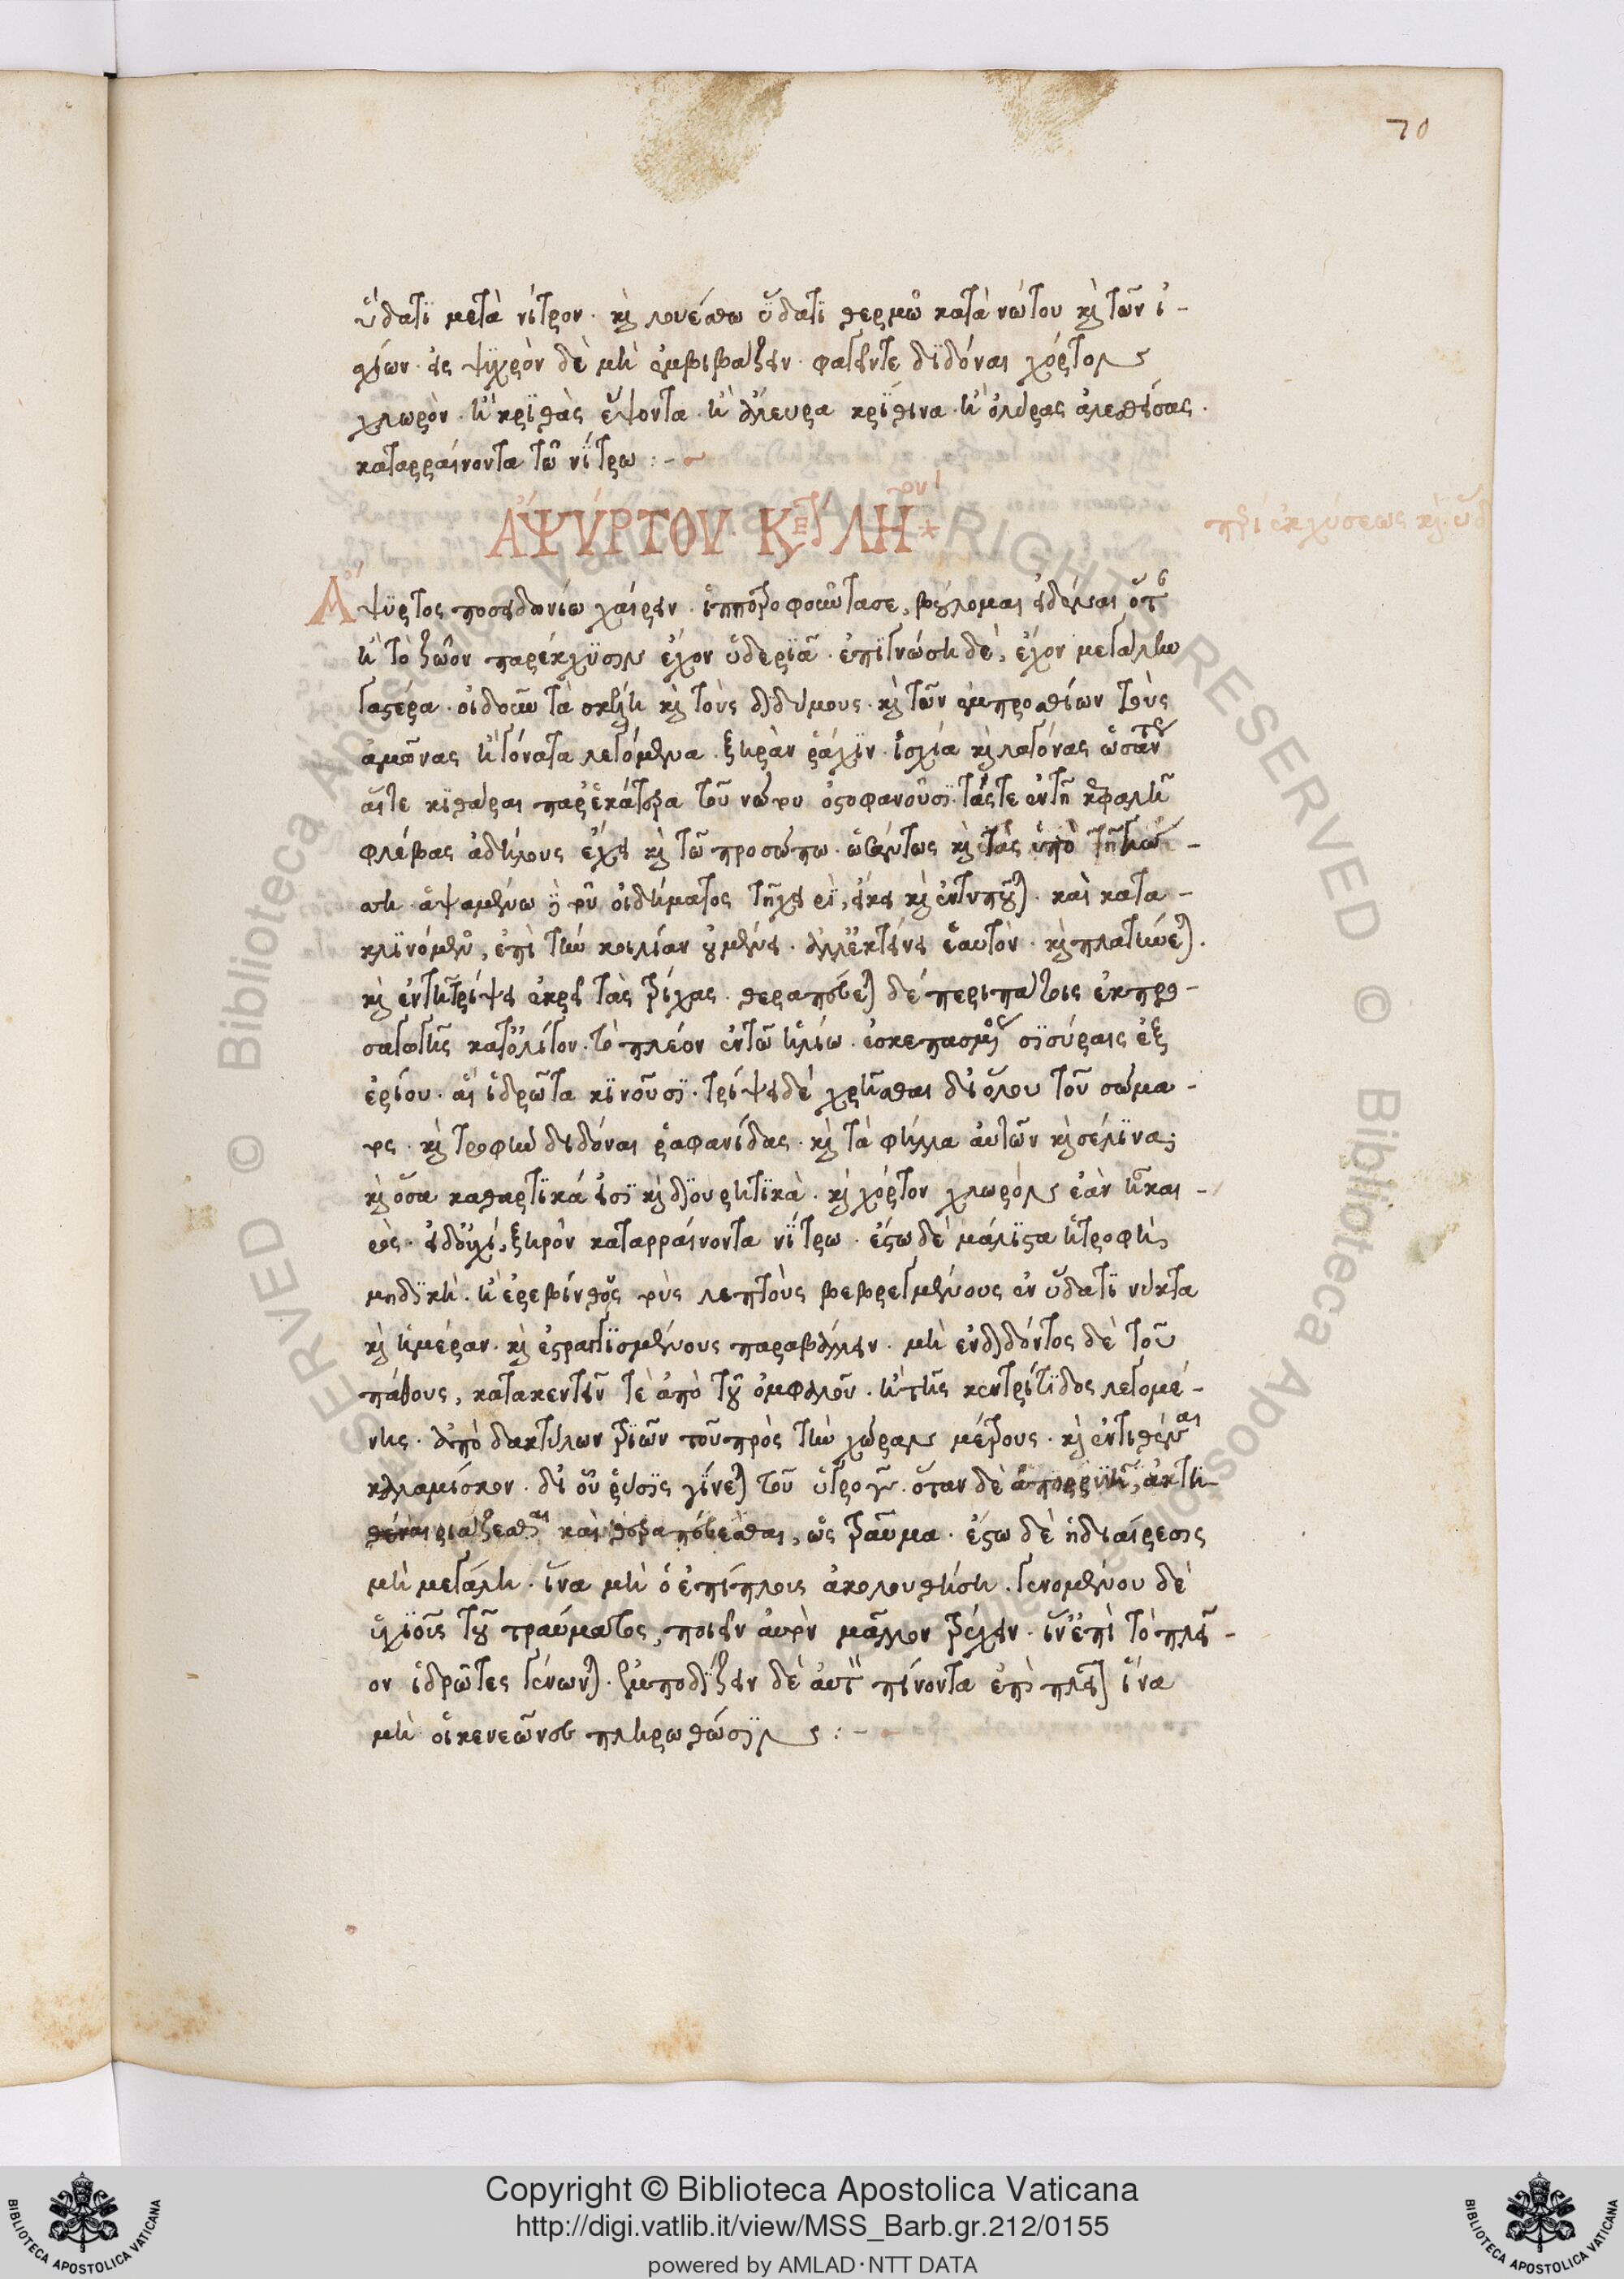 70
ὕδατϊ μετὰ νίτρον· κὶ λουέσθω ὕδατϊ θερμῶ κατὰ νώτου κὶ τῶν ἰ-
σχίων· εἰς ψϋχρὸν δὲ μὴ ἐμβιβάζειν· φαγεῖντε δϊδόναι χόρτον
χλωρὸν· ἢ κρϊθὰς ἕψοντα· ἢ ἄλευρα κρϊθινα· ἢ ὀλύρας ἀλεσθείσας·
καταρραίνοντα τῶ νίτρω :-
ἈΨΎΡΤΟΥ· Κεφάλη
περὶ ἐκχύσεως κὶ ὑδ
Ἄψϋρτος ποσειδωνίω χαίρειν· ἱπποτροφοῶντασε, βούλομαι εἰδέναι ὅτι
ἢ τὸ ζῶον παρέκχϋσιν ἔχον ὑδερϊᾶ· ἐπϊγνώση δὲ, ἔχον μεγάλην
γαστέρα· οἰδοῦν τὰ σκέλη κὶ τοὺς διδύμους· κὶ τῶν ἐμπροσθίων τοὺς
ἀμῶνας ἢ γόνατα λεγόμενα· ξηρὰν ῥάχϊν· ἰσχία κὶ λαγόνας ὡσὰν
αἵτε κϊθάραι παρἑκάτερα τοῦ νώτου ὀστοφανοῦσϊ· τάστε ἐντῆ κεφαλῆ
φλέβας ἀδήλους ἔχει κὶ τῶ προσώπω· ὡσαύτως κὶ τὰς ὑπὸ
καὶ κατα-
κλϊνόμενον, ἐπὶ τὴν κοιλίαν οὐ μένει· ἀλλἐκτείνει ἑαυτὸν· κὶ πλατύνεται·
κὶ ἐντητρίψει ἐκρεῖ τὰς τρίχας· θεραπεύεται δὲ περιπάτοις ἐκ προ-
σαγωγῆς κατὀλίγον· τὸ πλέον ἐντῶ ἡλίω· ἐσκεπασμένον σϊσύραις ἐξ
ἐρίου· αἳ ἱδρῶτα κϊνοῦσϊ· τρίψει δὲ χρῆσθαι διὅλου τοῦ σώμα-
τος· κὶ τροφὴν διδόναι ῥαφανίδας· κὶ τὰ φύλλα αὐτῶν κὶ σέλϊνα·
κὶ ὅσα καθαρτϊκά εἰσϊ κὶ δϊουρητϊκὰ· κὶ χόρτον χλωρὸν ἐὰν ἦ και-
ρὸς· εἰδοὐχὶ, ξηρὸν καταρραίνοντα νίτρω· ἔστω δὲ μάλϊστα ἡ τροφὴ,
μηδϊκὴ· ἢ ἐρεβίνθους τοὺς λεπτοὺς βεβρεγμένους ἐν ὕδατϊ νύκτα
κὶ ἡμέραν· κὶ ἐστραγγϊσμένους παραβάλλειν· μὴ ἐνδιδόντος δὲ τοῦ
πάθους, κατακεντεῖν τὲ ἀπὸ τοῦ ὀμφαλοῦ· ἢ τῆς κεντρίτϊδος λεγομέ-
νης· ἀπὸ δακτύλων τριῶν τοῦ πρὸς τὴν χώραν μέρους· κὶ ἐντιθέναι
καλαμίσκον· δι οὗ ῥύσϊς γίνεται τοῦ ὑγροῦ· ὅταν δὲ
καὶ θεραπεύεσθαι, ὡς τραῦμα· ἔστω δὲ ἡδιαίρεσις
μὴ μεγάλη· ἵνα μὴ ὁ ἐπίπλους ἀκολουθήση· γενομένου δὲ
ὑγϊοῦς τοῦ τραύματος, ποιεῖν αὐτὸν μᾶλλον τρέχειν· ἵνἐπὶ τὸ πλεῖ-
ον ἱδρῶτες γένωνται· ἐμποδίζειν δὲ αὐτὸν πίνοντα ἐπὶ πλεῖον ἵνα
μὴ οἱ κενεῶνες πληρωθῶσϊν :-
Copyright © Biblioteca Apostolica Vaticana
http://digi.vatlib.it/view/MSS_Barb.gr.212/0155
powered by AMLAD·NTT DATA